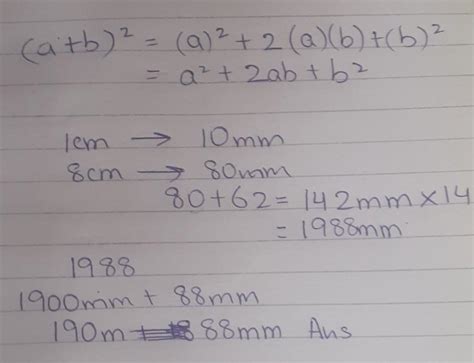 (a+b)² = (a)² + 2(a)(b)+(b)²
= a² + 2ab + b²
1cm → 10mm
8cm → 80mm
80+62 = 142mm × 14
= 1988mm
1988
1900mm + 88mm
190m 88mm Ans